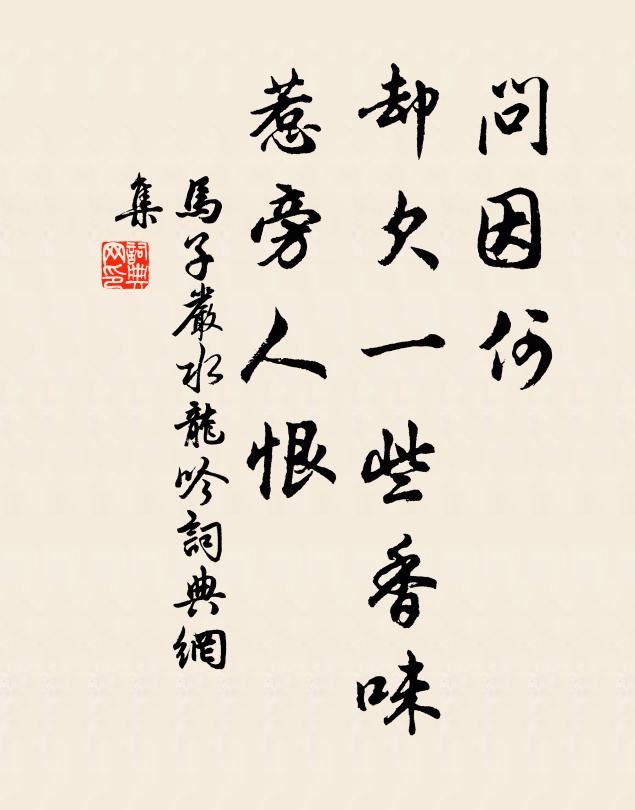 問因何
却欠一些香味
惹旁人恨
馬子嚴水龍吟詞典網
集
詞典
网印